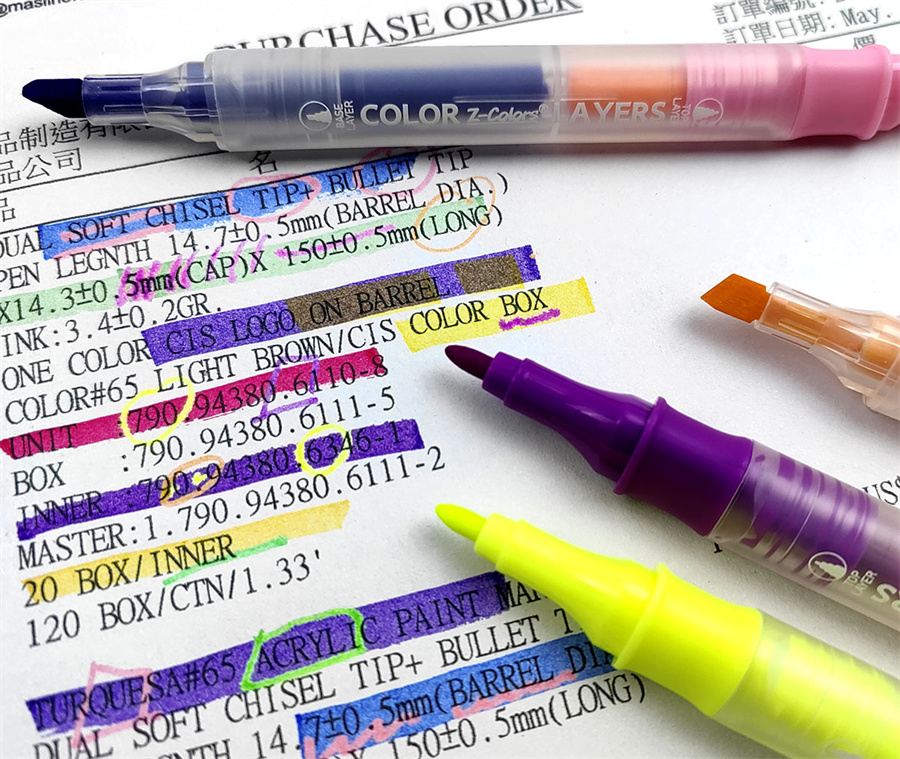 PURCHASE ORDER
訂單編號:
訂單日期: May.
價
BASE LAYER COLOR Z-Colors® LAYERS TOP LAYER
品制造有限
品公司
名
品
DUAL SOFT CHISEL TIP+ BULLET TIP
PEN LEGNTH 14.7±0.5mm(BARREL DIA.)
X14.3±0.5mm(CAP)X 150±0.5mm(LONG)
INK:3.4±0.2GR.
ONE COLOR CIS LOGO ON BARREL
COLOR#65 LIGHT BROWN/CIS COLOR BOX
UNIT :790.94380.6110-8
BOX :790.94380.6111-5
INNER :790.94380.6346-1
MASTER:1.790.94380.6111-2
20 BOX/INNER
120 BOX/CTN/1.33'
TURQUESA#65 ACRYLIC PAINT MA
DUAL SOFT CHISEL TIP+ BULLET T
GNTH 14.7±0.5mm(BARREL DIA
X 150±0.5mm(LONG)
US$
TOP LAYER